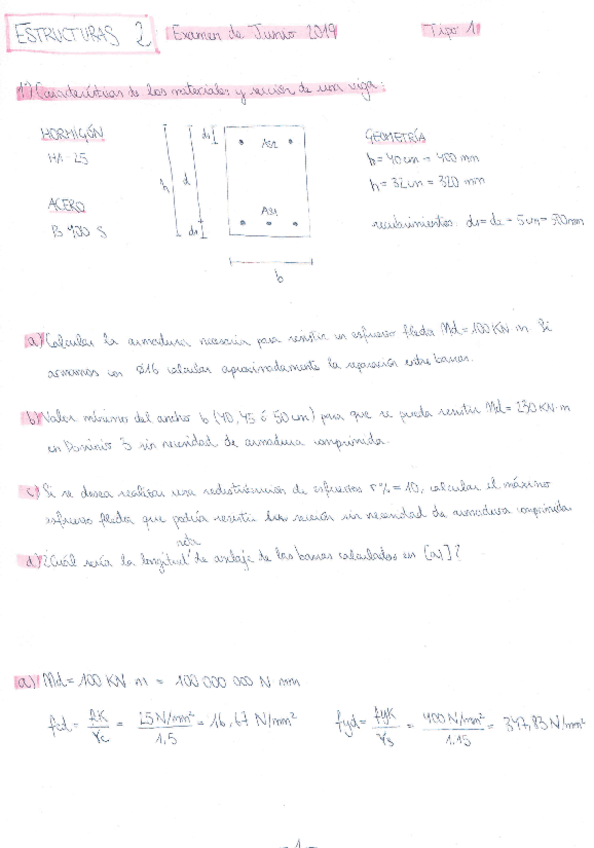 ESTRUCTURAS 2 Examen de Junio 2019 Tipo 1
1º) Características de los materiales y sección de una viga:
HORMIGÓN
HA-25
ACERO
B 400 S
d2
As2
h
d
As1
d1
b
GEOMETRÍA
b = 40 cm = 400 mm
h = 32 cm = 320 mm
recubrimientos: d1 = d2 = 5 cm = 50 mm
a) Calcular la armadura necesaria para resistir un esfuerzo flector Md = 100 KN m. Si
armamos con ø16 calcular aproximadamente la separación entre barras.
b) Valor mínimo del ancho b (40, 45 ó 50 cm) para que se pueda resistir Md = 230 KN·m
en Dominio 3 sin necesidad de armadura comprimida.
c) Si se desea realizar una redistribución de esfuerzos r% = 10, calcular el máximo
esfuerzo flector que podría resistir la sección sin necesidad de armadura comprimida
neta
d) ¿Cuál sería la longitud de anclaje de las barras calculadas en [a)]?
a) Md = 100 KN m = 100 000 000 N mm
fcd = fck/γc = 25 N/mm²/1,5 = 16,67 N/mm² fyd = fyk/γs = 400 N/mm²/1,15 = 347,83 N/mm²
- 1 -